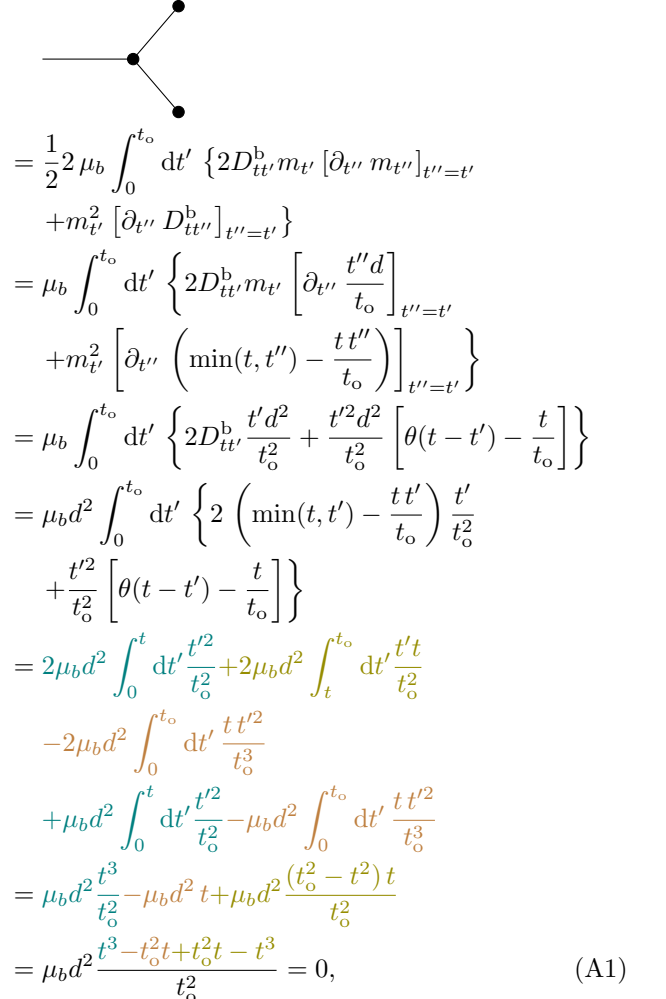 = \frac{1}{2} 2 \mu_b \int_0^{t_o} dt' \{ 2D^b_{tt'} m_{t'} [\partial_{t''} m_{t''}]_{t''=t'}
+ m^2_{t'} [\partial_{t''} D^b_{tt''}]_{t''=t'} \}
= \mu_b \int_0^{t_o} dt' \{ 2D^b_{tt'} m_{t'} [\partial_{t''} \frac{t'' d}{t_o}]_{t''=t'}
+ m^2_{t'} [\partial_{t''} ( \min(t, t'') - \frac{t t''}{t_o} )]_{t''=t'} \}
= \mu_b \int_0^{t_o} dt' \{ 2D^b_{tt'} \frac{t' d^2}{t_o^2} + \frac{t'^2 d^2}{t_o^2} [\theta(t - t') - \frac{t}{t_o}] \}
= \mu_b d^2 \int_0^{t_o} dt' \{ 2 ( \min(t, t') - \frac{t t'}{t_o} ) \frac{t'}{t_o^2}
+ \frac{t'^2}{t_o^2} [\theta(t - t') - \frac{t}{t_o}] \}
= 2\mu_b d^2 \int_0^t dt' \frac{t'^2}{t_o^2} + 2\mu_b d^2 \int_t^{t_o} dt' \frac{t' t}{t_o^2}
- 2\mu_b d^2 \int_0^{t_o} dt' \frac{t t'^2}{t_o^3}
+ \mu_b d^2 \int_0^t dt' \frac{t'^2}{t_o^2} - \mu_b d^2 \int_0^{t_o} dt' \frac{t t'^2}{t_o^3}
= \mu_b d^2 \frac{t^3}{t_o^2} - \mu_b d^2 t + \mu_b d^2 \frac{(t_o^2 - t^2) t}{t_o^2}
= \mu_b d^2 \frac{t^3 - t_o^2 t + t_o^2 t - t^3}{t_o^2} = 0, (A1)